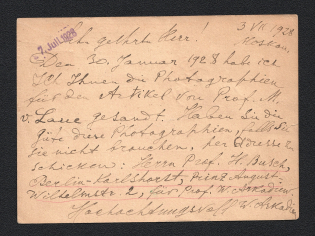 7. Juli 1928
3 VII 1928
Sehr geehrter Herr!
Moskau.
Den 30. Januar 1928 habe ich
Ihnen die Photographien
für den Artikel von Prof. M.
v. Laue gesandt. Haben Sie die
Güte diese Photographien, falls Sie
sie nicht brauchen, per Adresse zu
schicken: Herrn Prof. H. Busch,
Berlin-Karlshorst, Prinz August-
Wilhelmstr. 2, für Prof. W. Arkadiew
Hochachtungsvoll W. Arkadiew